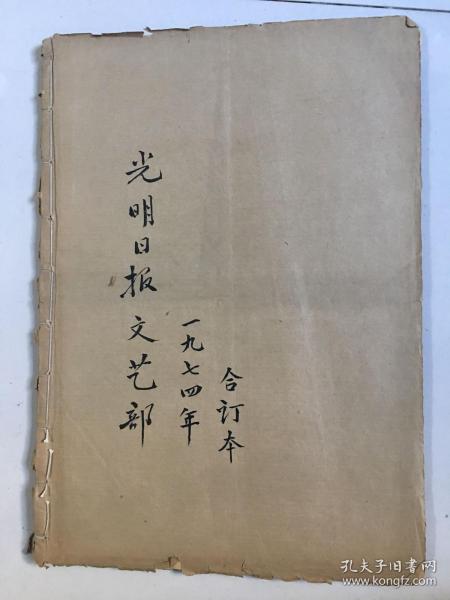 光明日报文艺部
一九七四年
合订本
孔夫子旧书网
www.kongfz.com